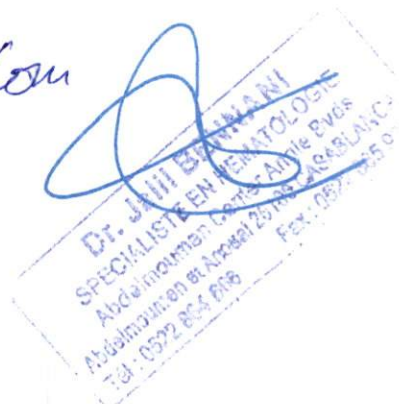 Dr. Jalil BENNANI
SPECIALISTE EN HEMATOLOGIE
Abdelmoumen Center Angle Bvds
Abdelmoumen et Anoual 20100 CASABLANCA
Tél : 0522 864 806 Fax : 0522